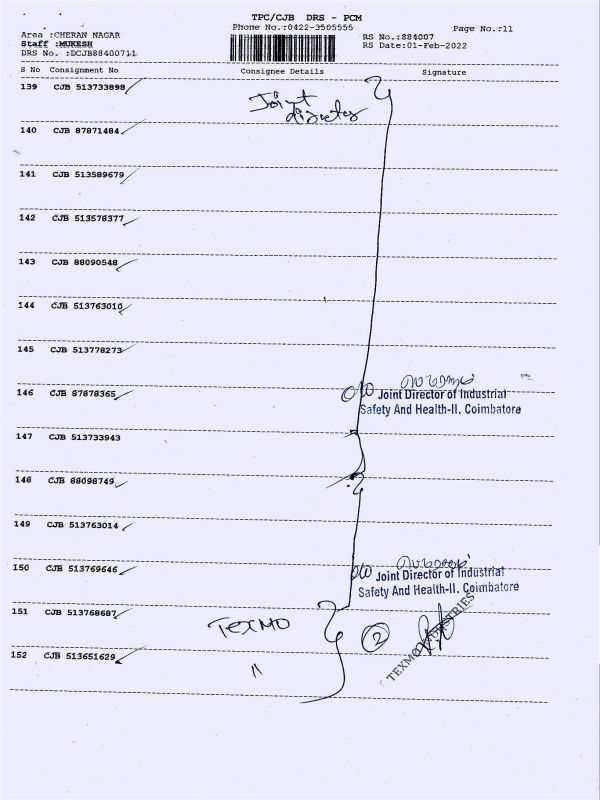 TPC/CJB DRS - PCM
Phone No.:0422-3505555
Page No.:11
Area :CHERAN NAGAR
Staff :MUKESH
DRS No. :DCJB88400711
RS No.:884007
RS Date:01-Feb-2022
S No Consignment No Consignee Details Signature
139 CJB 513733898
Joint
director
140 CJB 87871484
141 CJB 513589679
142 CJB 513578377
143 CJB 88090548
144 CJB 513763010
145 CJB 513778273
146 CJB 87878365
Joint Director of Industrial
Safety And Health-II, Coimbatore
147 CJB 513733943
148 CJB 88098749
149 CJB 513763014
150 CJB 513769646
Joint Director of Industrial
Safety And Health-II, Coimbatore
151 CJB 513768687
TEXMO
2
TEXMO INDUSTRIES
152 CJB 513651629
"